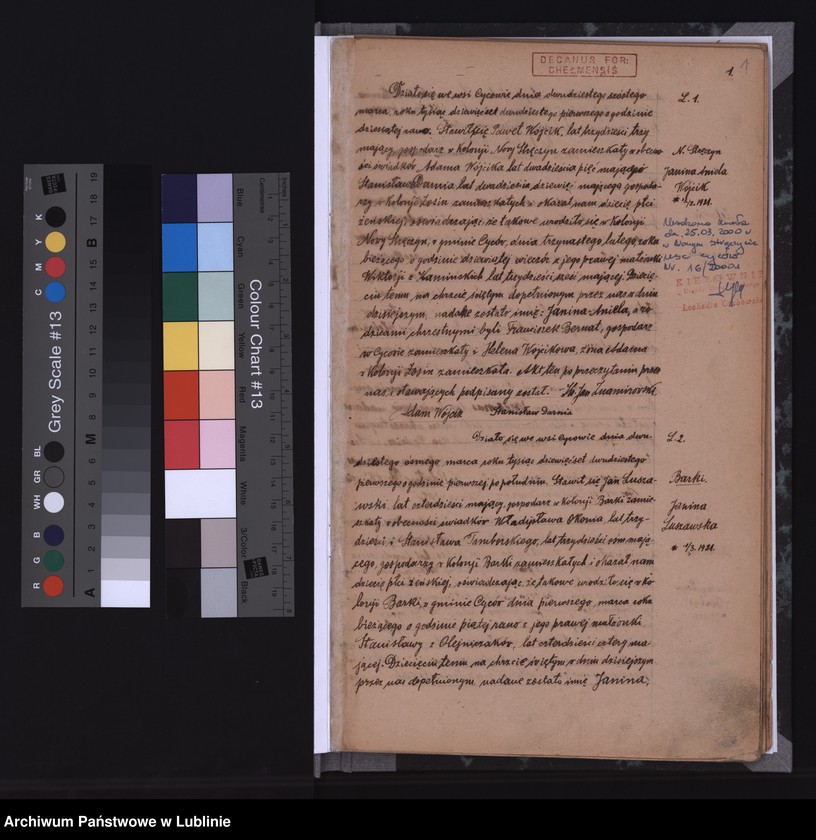 DECANUS FOR:
CHEŁMENSIS
1.
1
L. 1.
Działo się we wsi Cycowie dnia dwudziestego szóstego
marca roku tysiąc dziewięćset dwudziestego pierwszego o godzinie
dziesiątej rano. Stawił się Paweł Wójcik, lat trzydzieści trzy
mający, gospodarz w Kolonji Nowy Stręczyn zamieszkały w obecno-
ści świadków Adama Wójcika lat dwadzieścia pięć mającego
Stanisława Darnia lat dwadzieścia dziewięć mającego gospoda-
rzy w Kolonji Zosin zamieszkałych i okazał nam dziecię płci
żeńskiej, oświadczając, że takowe urodziło się w Kolonji
Nowy Stręczyn, w gminie Cyców, dnia trzynastego lutego, roku
bieżącego o godzinie dziewiątej wieczór z jego prawej małżonki
Wiktorji z Kamińskich lat trzydzieści sześć mającej. Dziecię-
ciu temu na chrzcie świętym dopełnionym przez nas w dniu
dzisiejszym, nadane zostało imię: Janina-Aniela, a ro-
dzicami chrzestnymi byli Franciszek Bernat, gospodarz
w Cycowie zamieszkały i Helena Wójcikowa, żona Adama
w Kolonji Zosin zamieszkała. Akt ten po przeczytaniu przez
nas i stawających podpisany został. Ks. Jan Znamirowski
Adam Wójcik Stanisław Darnia
N. Stręczyn
Janina Aniela
Wójcik
1921.
dn. 25.03.2000 r
w Nowym Stręczynie
USC
Nr. 16/2000
KIEROWNIK
L. 2.
Działo się we wsi Cycowie dnia dwu-
dziestego ósmego marca roku tysiąc dziewięćset dwudziestego
pierwszego o godzinie pierwszej po południu. Stawił się Jan Łusza-
wski, lat czterdzieści mający, gospodarz w Kolonji Barki zamie-
szkały w obecności świadków Władysława Okonia, lat trzy-
dzieści i Stanisława Tamborskiego, lat trzydzieści ośm mają-
cego, gospodarzy w Kolonji Barki zamieszkałych i okazał nam
dziecię płci żeńskiej, oświadczając, że takowe urodziło się w Ko-
lonji Barki, w gminie Cyców dnia pierwszego, marca roku
bieżącego o godzinie piątej rano z jego prawej małżonki
Stanisławy z Olejniczaków, lat czterdzieści cztery ma-
jącej. Dziecięciu temu na chrzcie świętym, w dniu dzisiejszym
przez nas dopełnionym, nadane zostało imię Janina,
Barki.
Janina
Łuszawska
* 1/3. 1921.
Grey Scale #13
C M Y K
R G B WH GR BL
A 1 2 3 4 5 6 M 8 9 10 11 12 13 14 15 B 17 18 19
Colour Chart #13
Blue Cyan Green Yellow Red Magenta White 3/Color Black
Centimetres Inches
Archiwum Państwowe w Lublinie